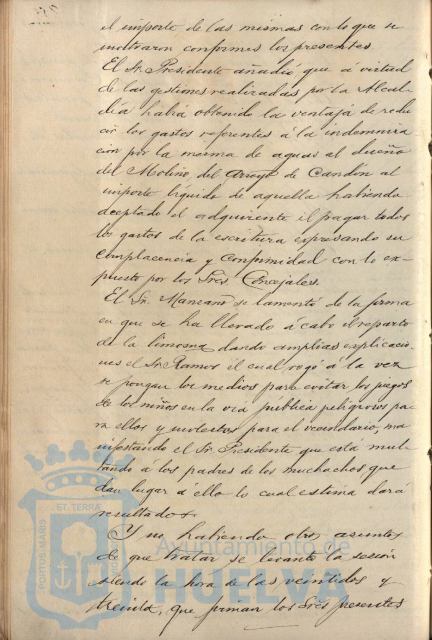 el importe de las mismas con lo que se
mostraron conformes los presentes.
El Sr. Presidente añadió, que á virtud
de las gestiones realizadas por la Alcal-
día había obtenido la ventaja de redu
cir los gastos referentes á la indemniza
cion por la merma de aguas al dueño
del Molino del Arroyo de Candon al
importe líquido de aquella habiendo
aceptado el adquirente el pagar todos
los gastos de la escritura expresando su
complacencia y conformidad con lo ex-
puesto por los Sres. Concejales.
El Sr. Manzano se lamentó de la forma
en que se ha llevado á cabo el reparto
de la limosna dando amplias explicacio-
nes el Sr. Ramos el cual rogó á la vez
se pongan los medios para evitar los juegos
de los niños en la via publica peligrosos pa
ra ellos y molestos para el vecindario, ma
nifestando el Sr. Presidente que está mul-
tando a los padres de los muchachos que
dan lugar á ello lo cual estima dará
resultado
Y no habiendo otros asuntos
de que tratar se levantó la sesión
siendo la hora de las veintidos y
treinta, que firman los Sres. presentes
Ayuntamiento de
HUELVA
PORTUS MARIS
ET TERRÆ